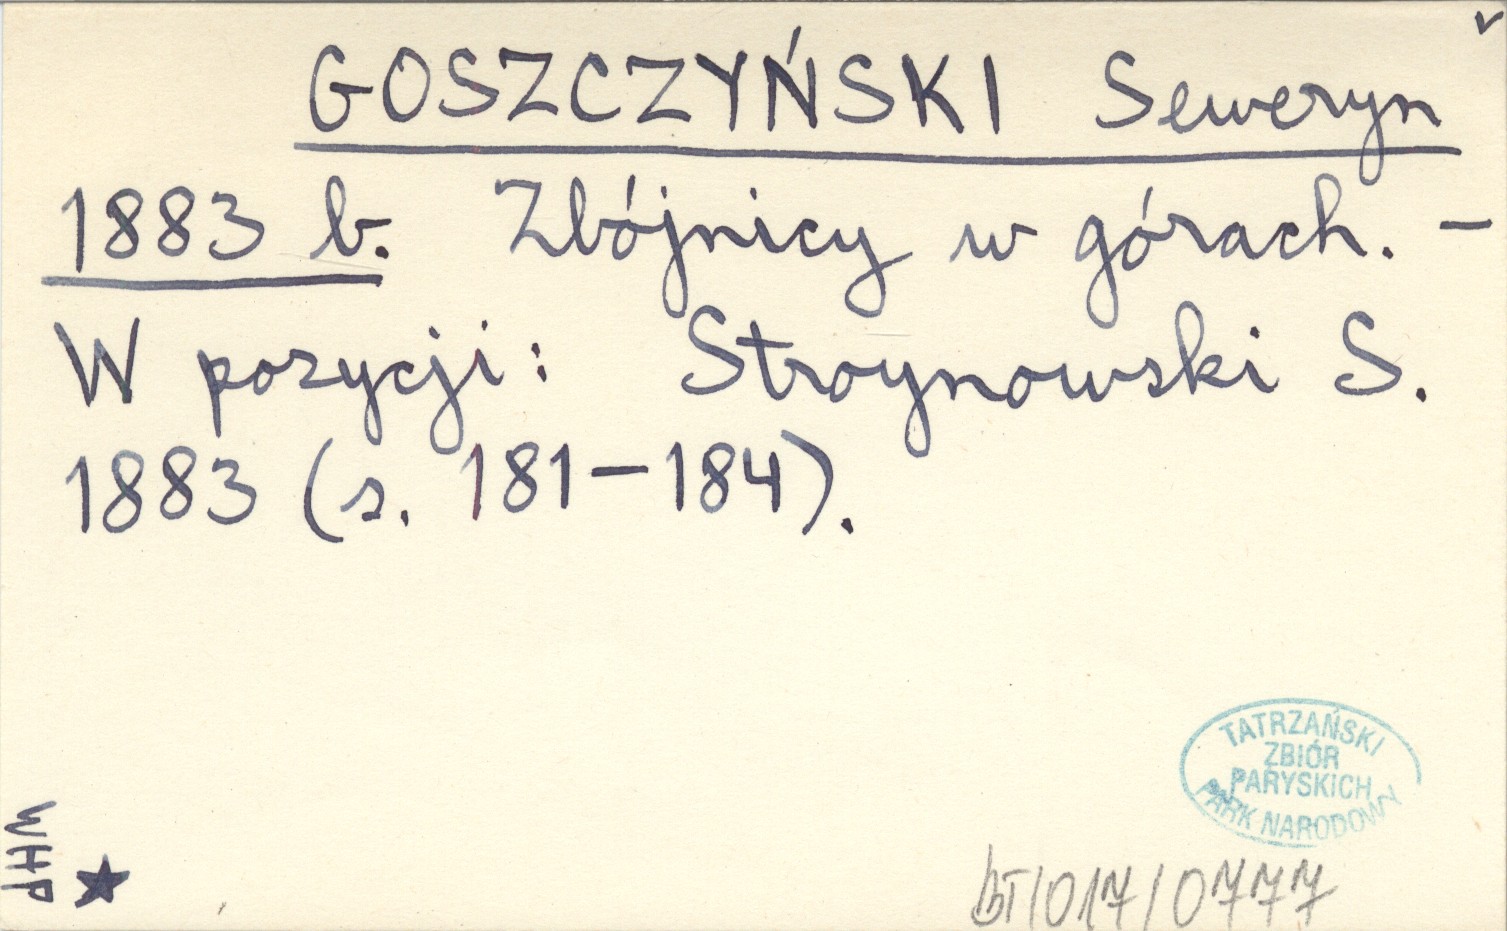 GOSZCZYŃSKI Seweryn
1883 b. Zbójnicy w górach. –
W pozycji: Stroynowski S.
1883 (s. 181–184).
TATRZAŃSKI
ZBIÓR
PARYSKICH
PARK NARODOWY
WHP
BT/017/0777